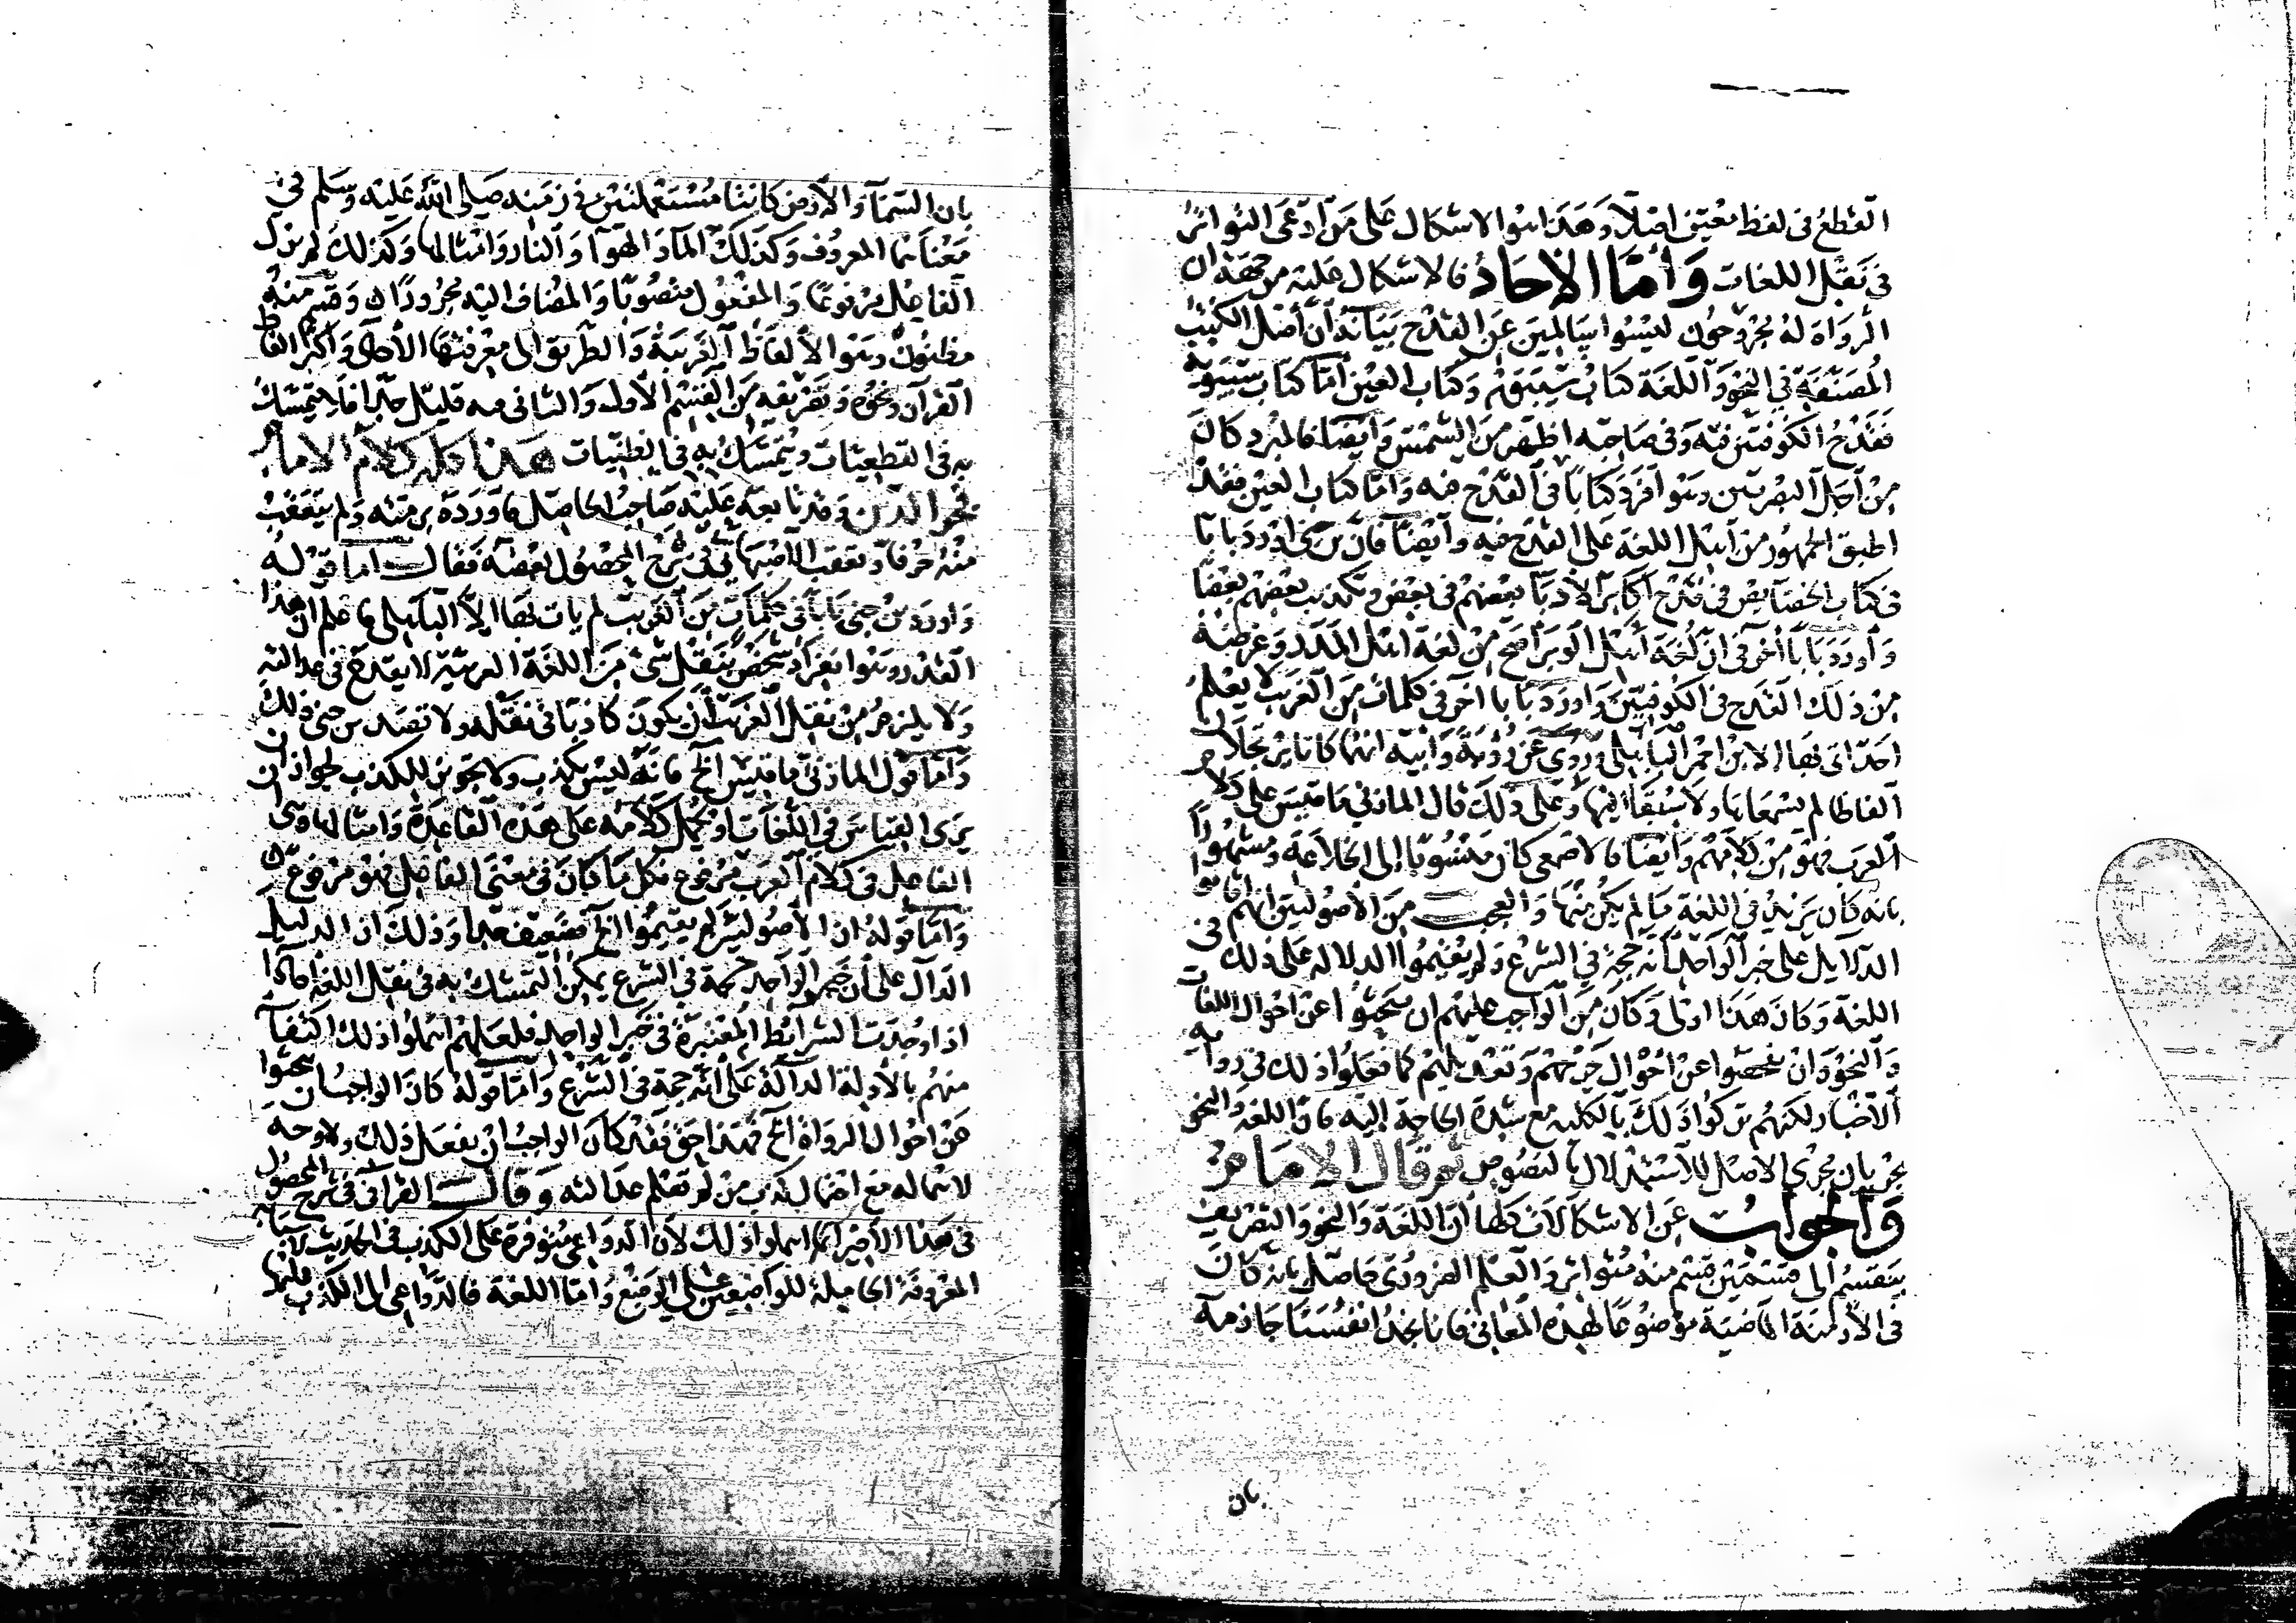 القطع فى لفظ معين اصلا وهذا هو الاشكال على من ادعى التواتر
فى نقل اللغات واما الاحاد فالاشكال عليه من جهة ان
الرواة له مجروحون ليسوا سالمين عن القدح بيانه ان أصل الكتب
المصنفة فى النحو واللغة كتاب سيبويه وكتاب العين أما كتاب سيبويه
فقدح الكوفيين فيه وفى صاحبه اظهر من الشمس وأيضا فالمبرد كان
من أجل البصريين وهو افرد كتابا فى القدح فيه وأما كتاب العين فقد
اطبق الجمهور من أهل اللغة على القدح فيه وأيضا فان بن جنى أورد بابا
فى كتاب الخصايص فى قدح أكابر الأدبآ بعضهم فى بعض وتكذيب بعضهم بعضا
وأورد بابا آخر فى ان لغة أهل الوبر أصح من لغة اهل المدر وغرضه
من ذلك القدح فى الكوفيين وأورد بابا آخر فى كلمات من الغريب لا يعلم
احد اتى بها الا بن احمر الباهلى وروى عن رؤبة وأبيه انهما كانا يرتجلان
الفاظا لم يسمعاها ولا سبقا اليها وعلى ذلك قال المازنى ما قيس على كلام
العرب فهو من كلامهم وأيضا فالاصمعى كان منسوبا إلى الخلاعة ومشهورا
بانه كان يزيد فى اللغة ما لم يكن منها والعجب من الأصوليين انهم اقاموا
الدلايل على خبر الواحد أنه حجة فى الشرع ولم يقيموا الدلالة على ذلك فى
اللغة وكان هذا اولى وكان من الواجب عليهم ان يبحثوا عن احوال اللغات
والنحو وان يفحصوا عن احوال جرحهم وتعديلهم كما فعلوا ذلك فى رواة
الأخبار لكنهم تركوا ذلك بالكلية مع شدة الحاجة إليه فان اللغة والنحو
يجريان مجرى الاصل للاستدلال بالنصوص ثم قال الامام
والجواب عن الاشكالات كلها أن اللغة والنحو والتصريف
ينقسم الى قسمين قسم منه متواتر والعلم الضرورى حاصل بانه كان
فى الأزمنة الماضية موضوعا لهذه المعانى فانا نجد انفسنا جازمة
بان
بان السمآ والأرض كانتا مستعملتين فى زمنه صلى الله عليه وسلم فى
معناهما المعروف وكذلك المآ والهوآ والنار وامثالها وكذلك لم يزل
الفاعل مرفوعا والمفعول منصوبا والمضاف اليه مجرورا وقسم منه
مظنون وهو الألفاظ الغريبة والطريق الى معرفتها الأحاد وأكثر الفاظ
القرآن ونحوه وتصريفه من القسم الأول والثانى فيه قليل جدا فلا يتمسك
به فى القطعيات ويتمسك به فى الظنيات هذا كله كلام الامام
فخر الدين وقد تابعه عليه صاحب الحاصل فاورده برمته ولم يتعقب
منه حرفا وتعقب الأصبهانى فى شرح المحصول بعضه فقال اما قوله
وأورد بن جنى بابا فى كلمات من الغريب لم يات بها إلا الباهلى فاعلم ان هذا
القدر وهو انفراد شخص بنقل شى من اللغة العربية لا يقدح فى عدالته
ولا يلزم من نقل الغريب أن يكون كاذبا فى نقله ولا قصد بن جنى ذلك
وأما قول المازنى ما قيس الخ فانه ليس بكذب ولا تجويز للكذب لجواز ان
يرى القياس فى اللغات او يحمل كلامه على هذه القاعدة وامثالها وهى ان
الفاعل فى كلام العرب مرفوع فكل ما كان فى معنى الفاعل فهو مرفوع
وأما قوله ان الأصوليين لم يقيموا الخ فضعيف جدا وذلك ان الدليل
الدآل على أن خبر الواحد حجة فى الشرع يمكن التمسك به فى نقل اللغة احادا
اذا وجدت الشرائط المعتبرة فى خبر الواحد فلعلهم اهملوا ذلك اكتفآ
منهم بالأدلة الدآلة على أنه حجة فى الشرع وأما قوله كان الواجب ان يبحثوا
عن احوال الرواة الخ فهذا حق فقد كان الواجب أن يفعل ذلك ولا وجه
لاهماله مع احتمال كذب من لم تعلم عدالته وقال القرافى فى شرح المحصول
فى هذا الأخير انما اهملوا ذلك لأن الدواعى متوفرة على الكذب فى الحديث لاسبابه
المعروفة الحاملة للواضعين على الوضع وأما اللغة فالدواعى الى الكذب عليها